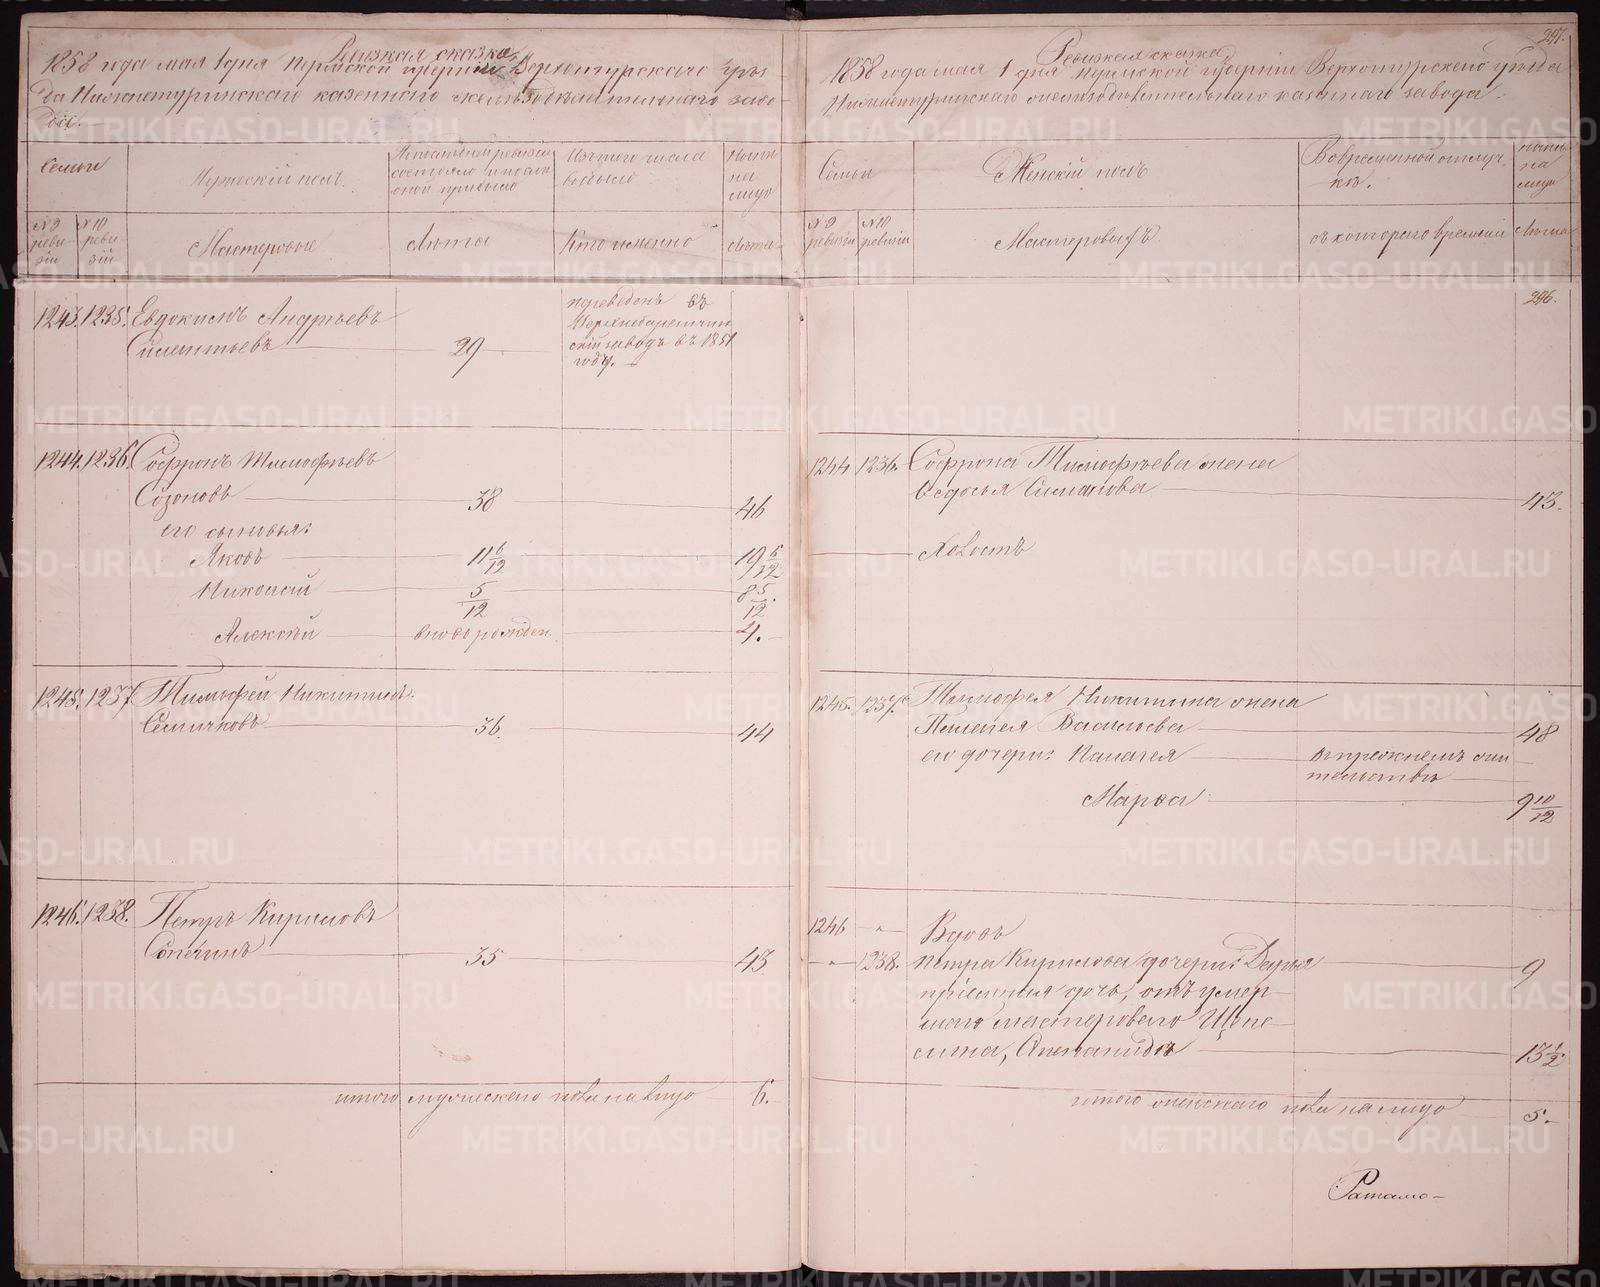 Ревизкая сказка
1858 года мая 1 дня Пермской губернии Верхотурскаго уѣз
да Нижнетуринскаго казеннаго желѣзодѣлательнаго заво-
да.
Семьи
Мужескій полъ.
По последней ревизіи
состояло и после
оной прибыло
Изъ того числа
выбыло
Ныне
на
лицо
№ 9
реви-
зіи
№ 10
реви-
зіи
Мастеровые
Лѣта
Кто именно
Лѣта
1243. 1235. Евдокимъ Андрѣевъ
29
переведенъ въ
скій заводъ въ 1851
году.
1244. 1236. Софронъ Тимофѣевъ
Созоновъ 38 46
его сыновья:
Яковъ 11 6/12 19 5/12
Николай 5/12 8 5/12.
Алексѣй вновь рожден. 4.
1245. 1237. Тимофей Никитинъ
Семичковъ 36. 44
1246. 1238. Петръ Кириловъ
Сопегинъ 35 43
итого мужескаго пола на лицо 6.
297.
Ревизкая сказка
1858 года мая 1 дня Пермской губерніи Верхотурскаго уѣзда
Нижнетуринскаго желѣзодѣлательнаго казеннаго завода.
Семьи
Женскій полъ
Во временной отлуч
кѣ.
Ныне
на
лицо
№ 9
ревизіи
№ 10
ревизіи
Мастеровыхъ
съ котораго времяни
Лѣта
296.
1244 1236. Софрона Тимофѣева жена
Федосья Симанова 43.
Холостъ
1245. 1237. Тимофея Никитина жена
Пелагея Васильева 48
его дочери: Палагея въ прежнемъ жи
тельствѣ
Марѳа 9 10/12
1246 -"- Вдовъ
-"- 1238. Петра Кирилова дочери: Дарья 9
пріемная дочь, отъ умер-
шаго мастероваго
13 1/2
итого женскаго пола на лицо 5.
Ратама-
METRIKI.GASO-URAL.RU